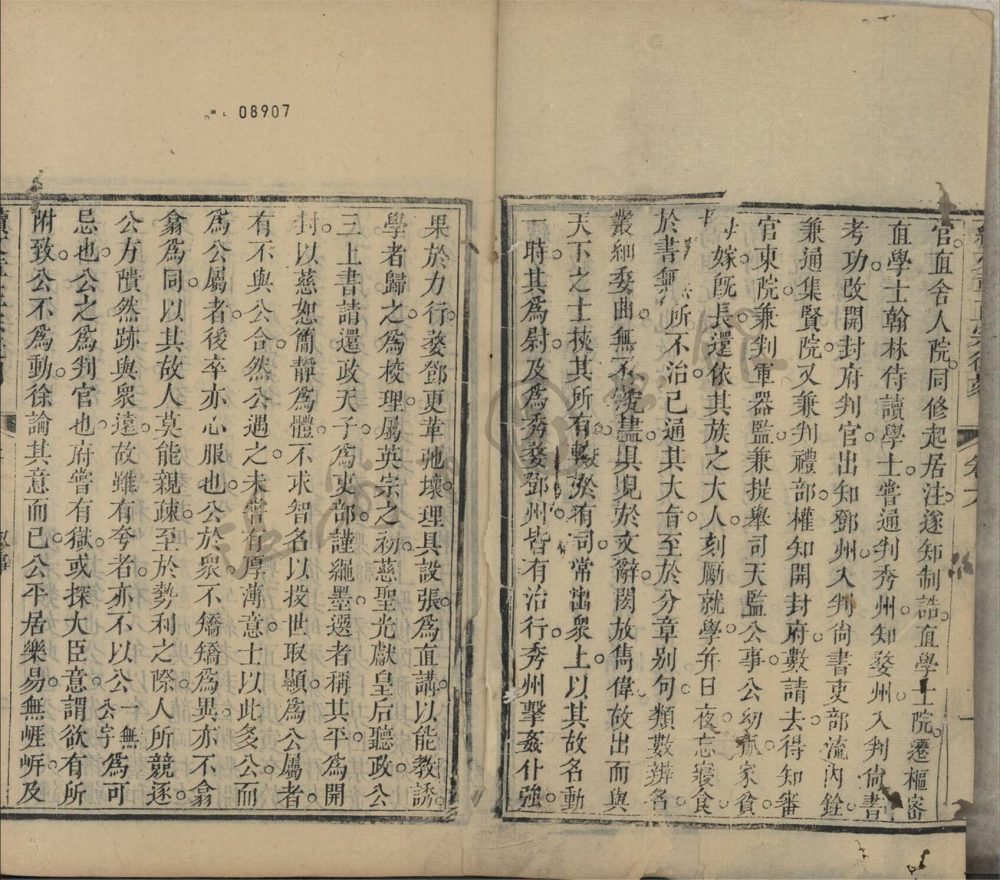 官直舍人院同修起居注遂知制誥直學士院遷樞密
直學士翰林侍讀學士嘗通判秀州知婺州入判尚書
考功改開封府判官出知鄧州入判尚書吏部流內銓
兼通集賢院又兼判禮部權知開封府數請去得知審
官東院兼判軍器監兼提舉司天監公事公幼孤家貧
母嫁既長還依其族之大人刻勵就學幷日夜忘寢食
於書無所不治已通其大旨至於分章別句類數辨名
叢細委曲無不究盡具見於文辭閎放雋偉故出而與
天下之士挾其所有較於有司常出眾上以其故名動
一時其為尉及為秀婺鄧州皆有治行秀州擊姦仆強
果於力行婺鄧更革弛壞理具設張為直講以能教誘
學者歸之為校理屬英宗之初慈聖光獻皇后聽政公
三上書請還政天子為吏部謹繩墨選者稱其平為開
封以慈恕簡靜為體不求智名以投世取顯為公屬者
有不與公合然公遇之未嘗有厚薄意士以此多公而
為公屬者後卒亦心服也公於眾不矯矯為異亦不翕
翕為同以其故人莫能親疎至於勢利之際人所競逐
公方隤然跡與眾遠故雖有夸者亦不以公一無公字為可
忌也公之為判官也府嘗有獄或探大臣意謂欲有所
附致公不為動徐論其意而已公平居樂易無崖岸及
卷六
08907